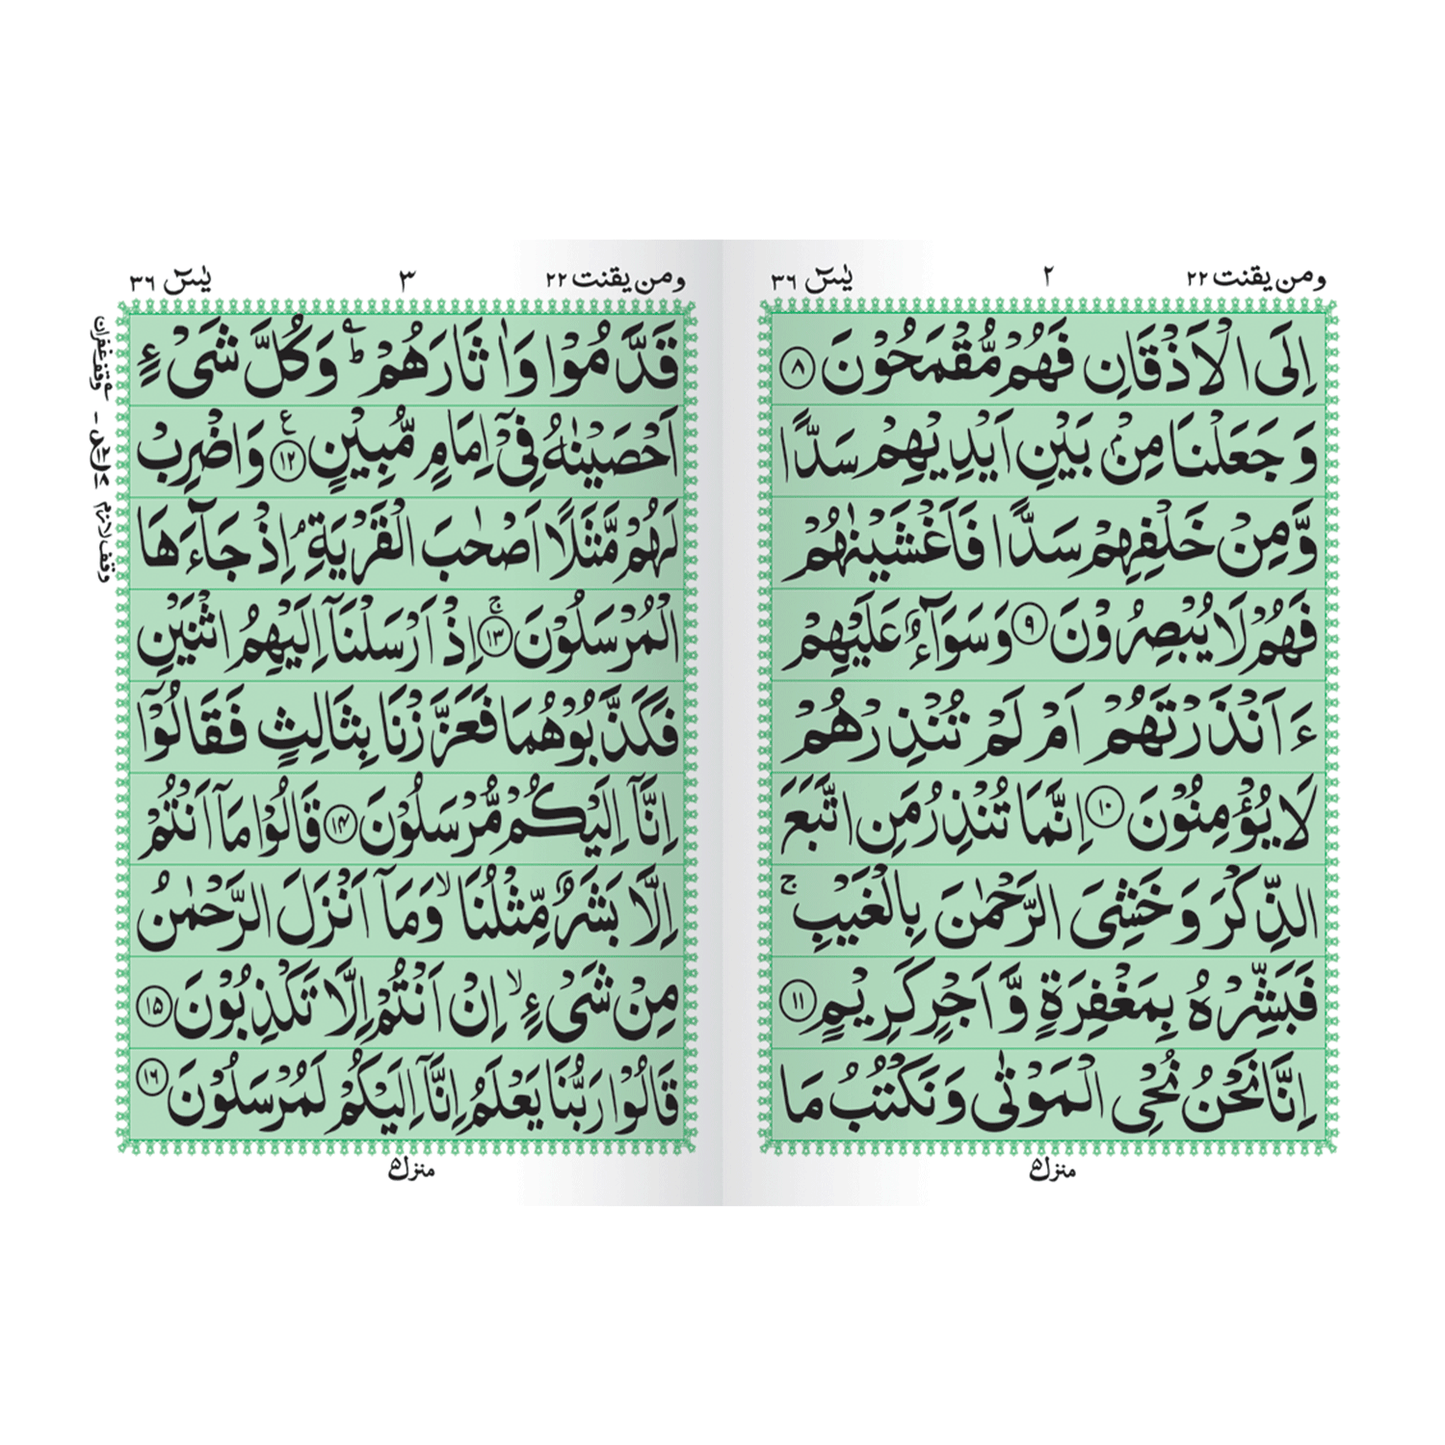 ومن یقنت ۲۲
۲
یٰسٓ ۳۶
اِلَى الْاَذْقَانِ فَهُمْ مُّقْمَحُوْنَ ۝۸
وَ جَعَلْنَا مِنْۢ بَيْنِ اَيْدِيْهِمْ سَدًّا
وَّمِنْ خَلْفِهِمْ سَدًّا فَاَغْشَيْنٰهُمْ
فَهُمْ لَا يُبْصِرُوْنَ ۝۹ وَ سَوَآءٌ عَلَيْهِمْ
ءَاَنْذَرْتَهُمْ اَمْ لَمْ تُنْذِرْهُمْ
لَا يُؤْمِنُوْنَ ۝۱۰ اِنَّمَا تُنْذِرُ مَنِ اتَّبَعَ
الذِّكْرَ وَ خَشِيَ الرَّحْمٰنَ بِالْغَيْبِ ۚ
فَبَشِّرْهُ بِمَغْفِرَةٍ وَّ اَجْرٍ كَرِيْمٍ ۝۱۱
اِنَّا نَحْنُ نُحْيِ الْمَوْتٰى وَ نَكْتُبُ مَا
منزل ۵
ومن یقنت ۲۲
۳
یٰسٓ ۳۶
قَدَّمُوْا وَ اٰثَارَهُمْ ؕ وَ كُلَّ شَيْءٍ
اَحْصَيْنٰهُ فِيْٓ اِمَامٍ مُّبِيْنٍ ۝۱۲ ع وَ اضْرِبْ
لَهُمْ مَّثَلًا اَصْحٰبَ الْقَرْيَةِ ۘ اِذْ جَآءَهَا
الْمُرْسَلُوْنَ ۝۱۳ ۚ اِذْ اَرْسَلْنَآ اِلَيْهِمُ اثْنَيْنِ
فَكَذَّبُوْهُمَا فَعَزَّزْنَا بِثَالِثٍ فَقَالُوْٓا
اِنَّآ اِلَيْكُمْ مُّرْسَلُوْنَ ۝۱۴ قَالُوْا مَآ اَنْتُمْ
اِلَّا بَشَرٌ مِّثْلُنَا ۙ وَمَآ اَنْزَلَ الرَّحْمٰنُ
مِنْ شَيْءٍ ۙ اِنْ اَنْتُمْ اِلَّا تَكْذِبُوْنَ ۝۱۵
قَالُوْا رَبُّنَا يَعْلَمُ اِنَّآ اِلَيْكُمْ لَمُرْسَلُوْنَ ۝۱۶
منزل ۵
وقف غفران
وقف لازم